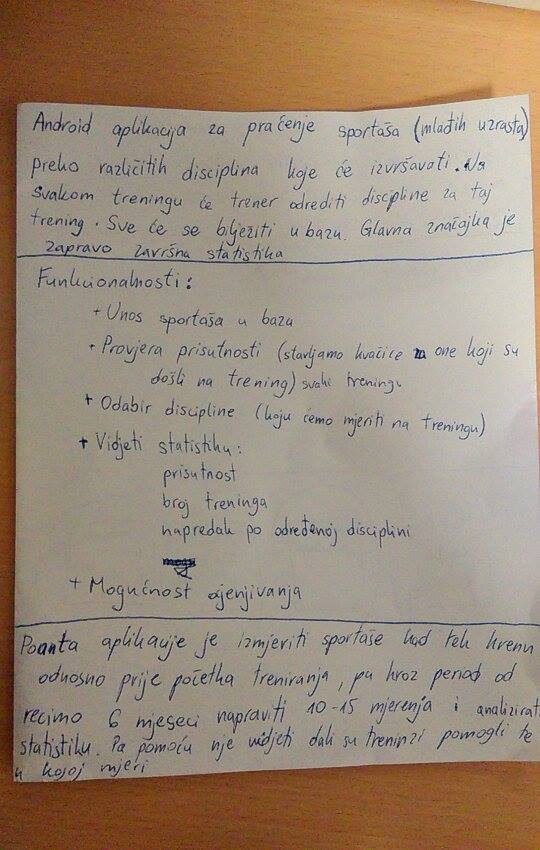 Android aplikacija za pračenje sportaša (mlađih uzrasta)
preko različitih disciplina koje će izvršavati. Na
svakom treningu će trener odrediti discipline za taj
trening. Sve će se bilježiti u bazu. Glavna značajka je
zapravo završna statistika
Funkcionalnosti:
+ Unos sportaša u bazu
+ Provjera prisutnosti (stavljamo kvačice za one koji su
došli na trening) svaki treningu
+ Odabir discipline (koju ćemo mjeriti na treningu)
+ Vidjeti statistiku:
prisutnost
broj treninga
napredak po određenoj disciplini
+ Mogućnost ocjenjivanja
Poanta aplikacije je izmjeriti sportaše kad tek krenu
odnosno prije početka treniranja, pa kroz period od
recimo 6 mjeseci napraviti 10-15 mjerenja i analizirat
statistiku. Pa pomoću nje vidjeti dali su treninzi pomogli te
u kojoj mjeri